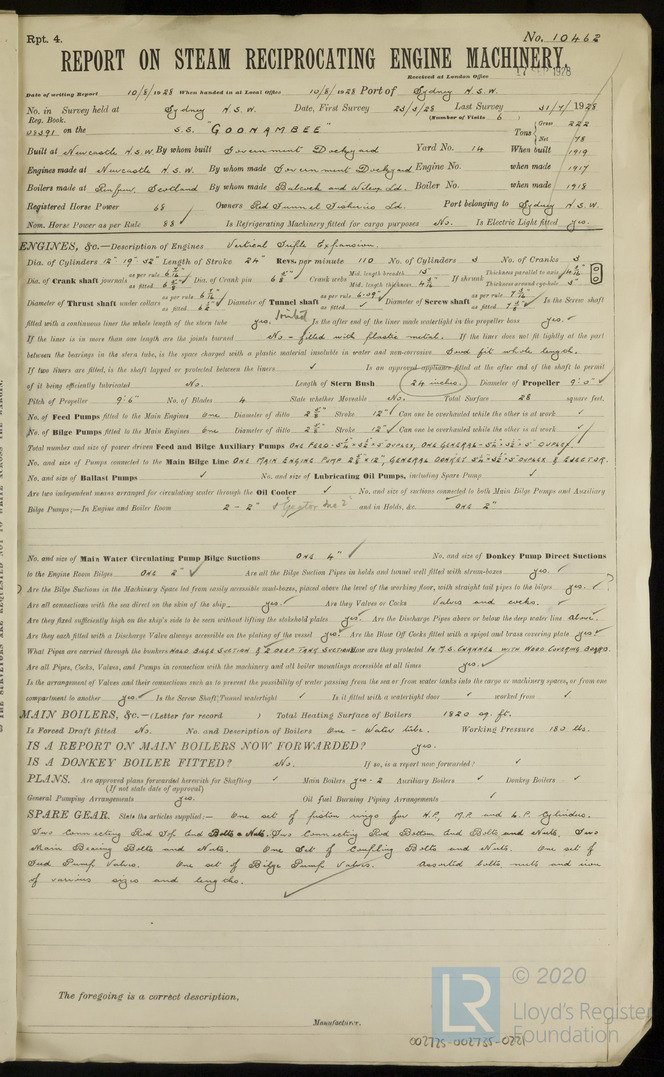 Rpt. 4.
No. 10462
REPORT ON STEAM RECIPROCATING ENGINE MACHINERY.
Received at London Office 1928
Date of writing Report 10/8/1928 When handed in at Local Office 10/8/1928 Port of Sydney N.S.W.
No. in Survey held at Sydney N.S.W. Date, First Survey 23/3/28 Last Survey 31/7/1928
Reg. Book. (Number of Visits 6
on the S.S. "GOONAMBEE" Tons Gross 222 Net 78
Built at Newcastle N.S.W. By whom built Government Dockyard Yard No. 14 When built 1919
Engines made at Newcastle N.S.W. By whom made Government Dockyard Engine No. when made 1917
Boilers made at Renfrew Scotland By whom made Babcock and Wilcox Ld. Boiler No. when made 1918
Registered Horse Power 68 Owners Red Funnel Fisheries Ld. Port belonging to Sydney N.S.W.
Nom. Horse Power as per Rule 88 Is Refrigerating Machinery fitted for cargo purposes No. Is Electric Light fitted yes.
ENGINES, &c.—Description of Engines Vertical Triple Expansion.
Dia. of Cylinders 12" 19" 32" Length of Stroke 24" Revs. per minute 110 No. of Cylinders 3 No. of Cranks 3
Dia. of Crank shaft journals as per rule as fitted Dia. of Crank pin Crank webs Mid. length breadth 13" Mid. length thickness If shrunk Thickness parallel to axis Thickness around eyehole
Diameter of Thrust shaft under collars as per rule as fitted Diameter of Tunnel shaft as per rule as fitted Diameter of Screw shaft as per rule as fitted Is the Screw shaft
fitted with a continuous liner the whole length of the stern tube yes. Is the after end of the liner made watertight in the propeller boss yes.
If the liner is in more than one length are the joints burned No - filled with plastic metal. If the liner does not fit tightly at the part
between the bearings in the stern tube, is the space charged with a plastic material insoluble in water and non-corrosive Good fit whole length.
If two liners are fitted, is the shaft lapped or protected between the liners Is an approved appliance fitted at the after end of the shaft to permit
of it being efficiently lubricated No. Length of Stern Bush 24 inches Diameter of Propeller 9'.0"
Pitch of Propeller 9'6" No. of Blades 4 State whether Moveable No. Total Surface 28 square feet.
No. of Feed Pumps fitted to the Main Engines One Diameter of ditto Stroke 12" Can one be overhauled while the other is at work
No. of Bilge Pumps fitted to the Main Engines One Diameter of ditto Stroke 12" Can one be overhauled while the other is at work
Total number and size of power driven Feed and Bilge Auxiliary Pumps ONE FEED DUPLEX, ONE GENERAL DUPLEX
No. and size of Pumps connected to the Main Bilge Line ONE MAIN ENGINE PUMP GENERAL DONKEY DUPLEX & EJECTOR.
No. and size of Ballast Pumps No. and size of Lubricating Oil Pumps, including Spare Pump
Are two independent means arranged for circulating water through the Oil Cooler No. and size of suctions connected to both Main Bilge Pumps and Auxiliary
Bilge Pumps;—In Engine and Boiler Room 2 - 2" & Ejector one 2" and in Holds, &c. ONE 2"
No. and size of Main Water Circulating Pump Bilge Suctions ONE 4" No. and size of Donkey Pump Direct Suctions
to the Engine Room Bilges ONE 2" Are all the Bilge Suction Pipes in holds and tunnel well fitted with strum-boxes yes.
Are the Bilge Suctions in the Machinery Space led from easily accessible mud-boxes, placed above the level of the working floor, with straight tail pipes to the bilges yes.
Are all connections with the sea direct on the skin of the ship yes Are they Valves or Cocks Valves and cocks.
Are they fixed sufficiently high on the ship's side to be seen without lifting the stokehold plates yes. Are the Discharge Pipes above or below the deep water line Above.
Are they each fitted with a Discharge Valve always accessible on the plating of the vessel yes. Are the Blow Off Cocks fitted with a spigot and brass covering plate yes
What Pipes are carried through the bunkers HOLD BILGE SUCTION & 2 DEEP TANK SUCTIONS How are they protected IN M.S. CHANNEL WITH WOOD COVERING BOARD.
Are all Pipes, Cocks, Valves, and Pumps in connection with the machinery and all boiler mountings accessible at all times yes.
Is the arrangement of Valves and their connections such as to prevent the possibility of water passing from the sea or from water tanks into the cargo or machinery spaces, or from one
compartment to another yes. Is the Screw Shaft Tunnel watertight Is it fitted with a watertight door worked from
MAIN BOILERS, &c.—(Letter for record ) Total Heating Surface of Boilers 1820 sq. ft.
Is Forced Draft fitted No. No. and Description of Boilers One - Water tube. Working Pressure 180 lbs.
IS A REPORT ON MAIN BOILERS NOW FORWARDED? yes.
IS A DONKEY BOILER FITTED? No. If so, is a report now forwarded?
PLANS. Are approved plans forwarded herewith for Shafting Main Boilers yes - 2 Auxiliary Boilers Donkey Boilers
(If not state date of approval)
General Pumping Arrangements yes. Oil fuel Burning Piping Arrangements
SPARE GEAR. State the articles supplied:— One set of piston rings for H.P., M.P. and L.P. Cylinders.
Two Connecting Rod Top End Bolts & Nuts. Two Connecting Rod Bottom End Bolts and Nuts. Two
Main Bearing Bolts and Nuts. One Set of Coupling Bolts and Nuts. One set of
Feed Pump Valves. One set of Bilge Pump Valves. Assorted bolts, nuts and iron
of various sizes and lengths.
The foregoing is a correct description,
Manufacturer.
© 2020
LR
Lloyd's Register
Foundation
002725-002735-0221